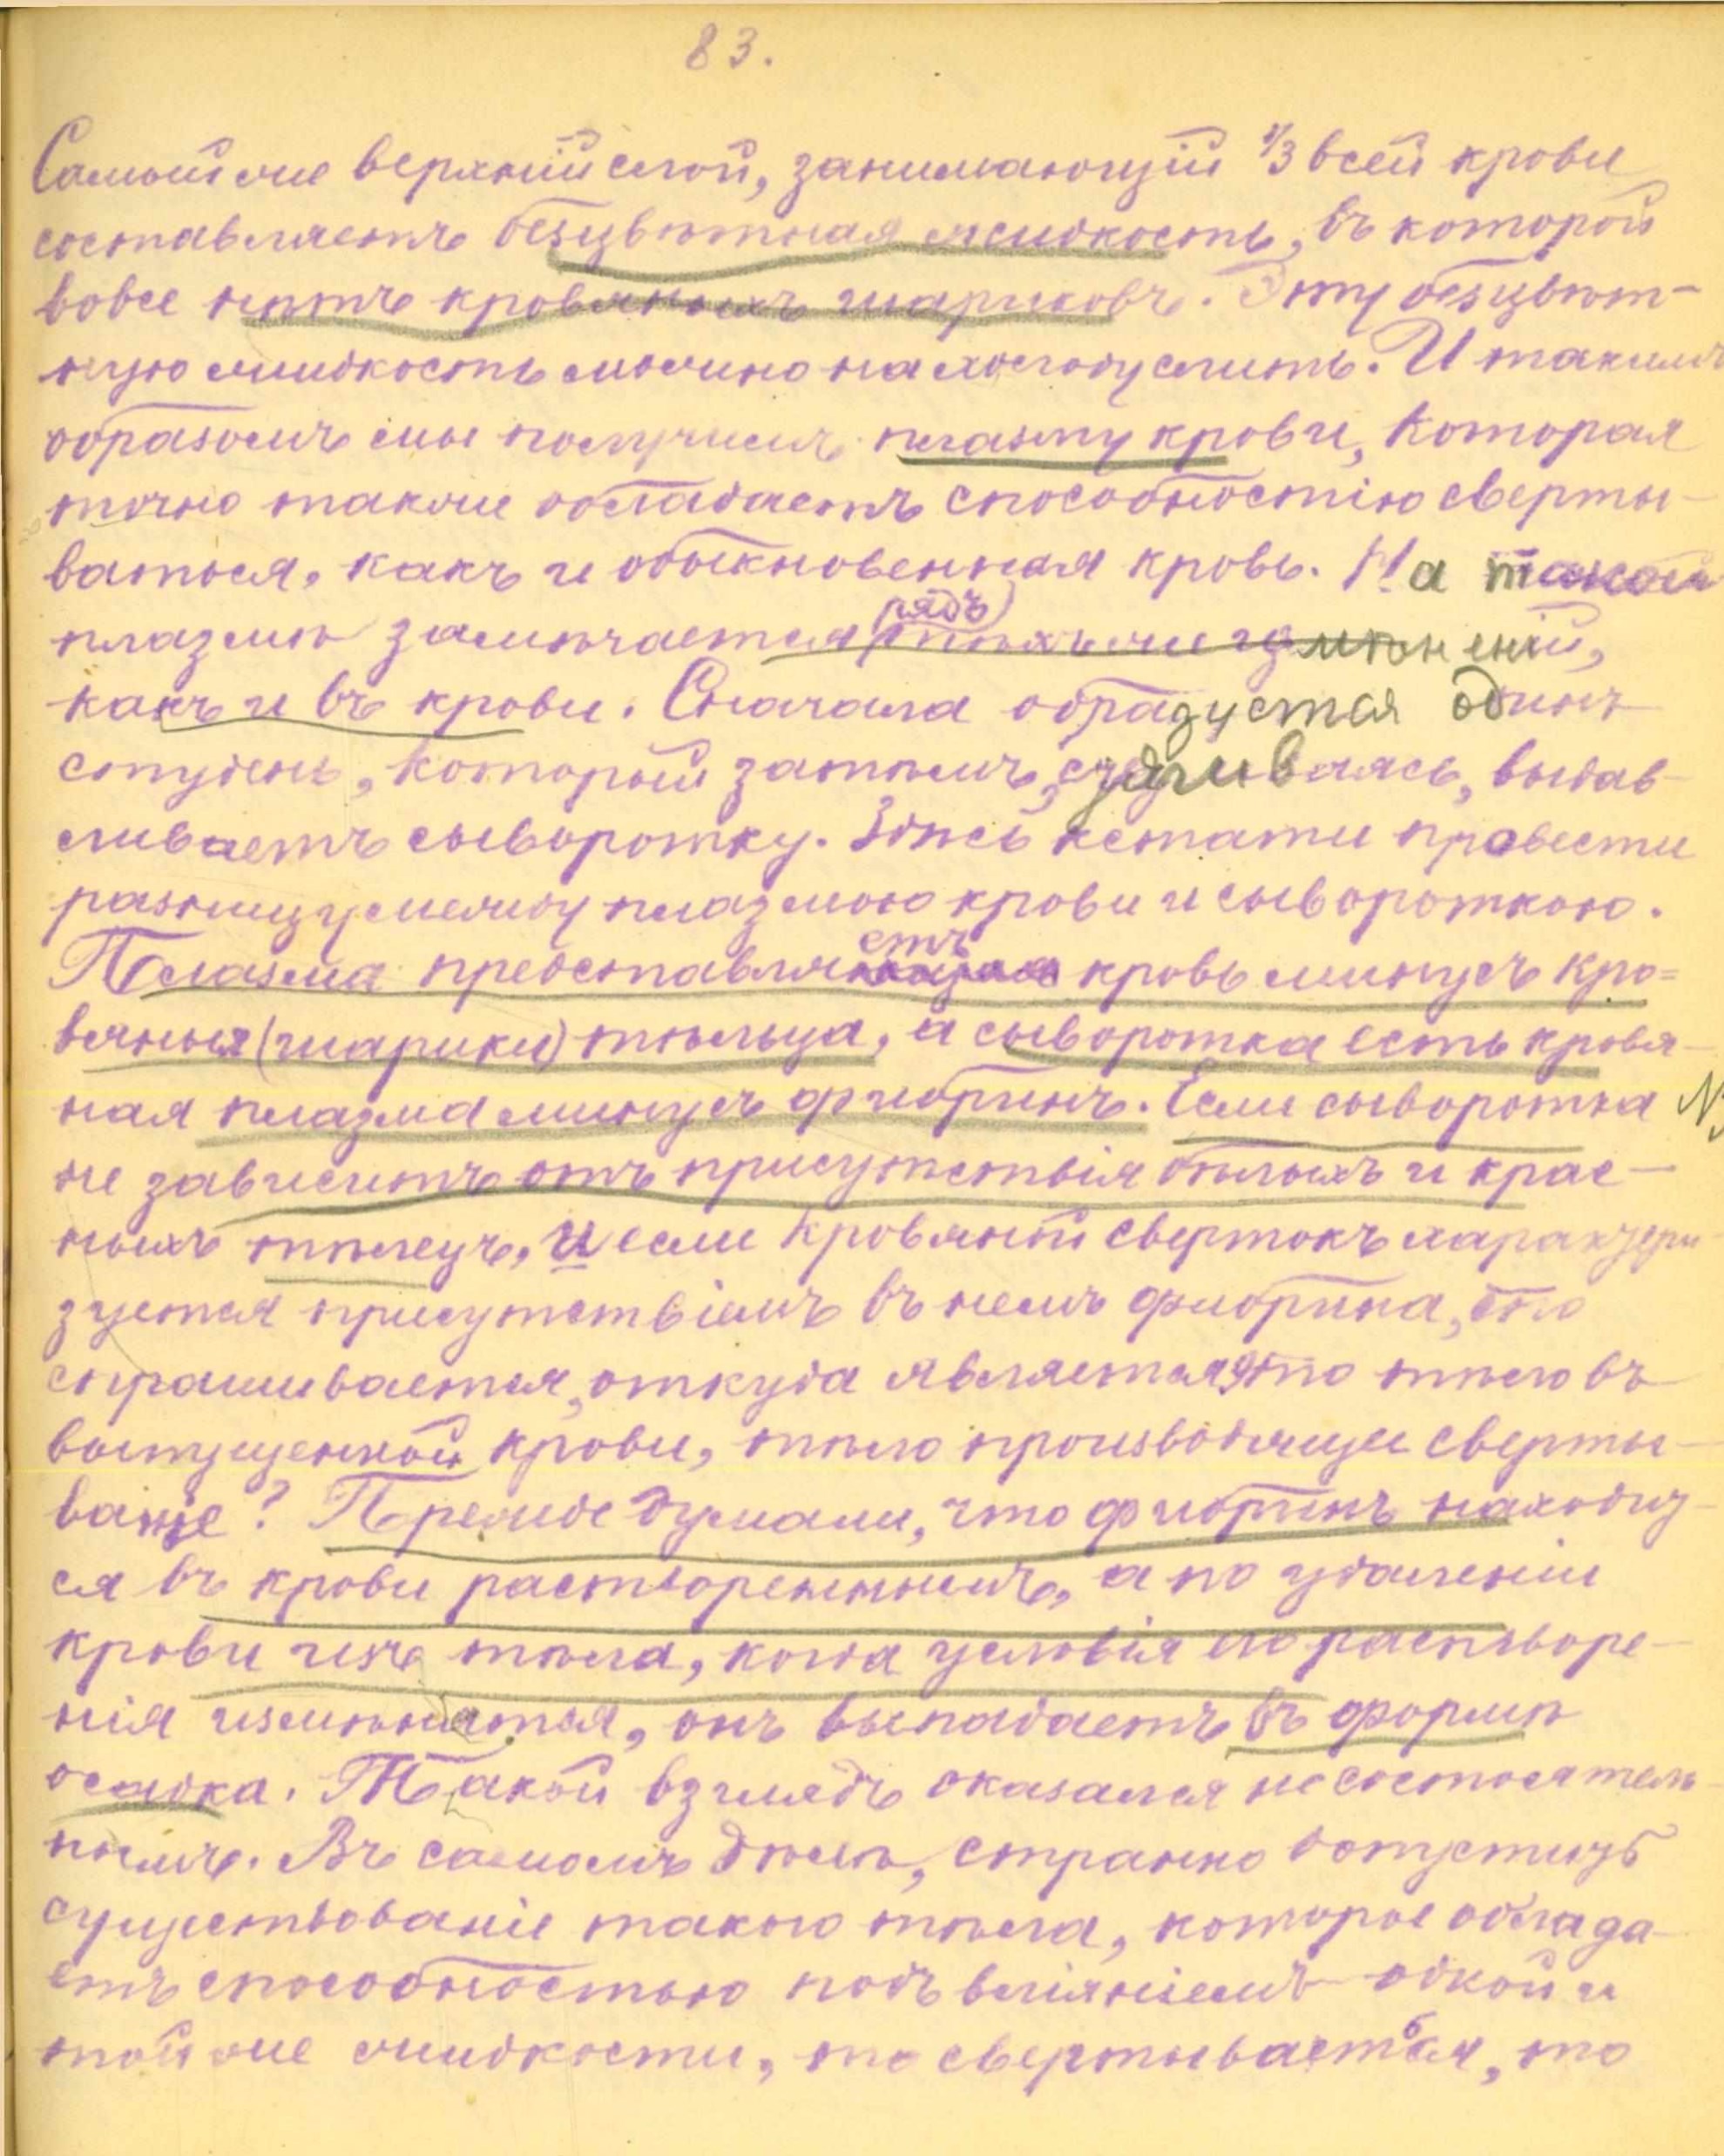 83.
Самый же верхній слой, занимающій 1/3 всей крови
составляетъ безцвѣтная жидкость, въ которой
вовсе нѣтъ кровяныхъ шариковъ. Эту безцвѣт-
ную жидкость можно на холоду слить. И такимъ
образомъ мы получимъ плазму крови, которая
точно также обладаетъ способностію сверты-
ваться, какъ и обыкновенная кровь. На такой
плазмѣ замѣчается рядъ тѣхъ же измѣненій,
какъ и въ крови. Сначала образуется одинъ
студень, который затѣмъ, сцѣживаясь, выдав-
ливаетъ сыворотку. Здѣсь кстати провести
разницу между плазмою крови и сывороткою.
Плазма представляетъ кровь минусъ кро=
вяныя (шарики) тѣльца, а сыворотка есть кровя-
ная плазма минусъ фибринъ. Если сыворотка
не зависитъ отъ присутствія бѣлыхъ и крас-
ныхъ тѣлецъ, и если кровяной свертокъ характери-
зуется присутствіемъ въ немъ фибрина, то
спрашивается, откуда является это тѣло въ
выпущенной крови, тѣло производящее сверты-
ваніе? Прежде думали, что фибринъ находит-
ся въ крови раствореннымъ, а по удаленіи
крови изъ тѣла, когда условія его растворе-
нія измѣнятся, онъ выпадаетъ въ формѣ
осадка. Такой взглядъ оказался несостоятель-
нымъ. Въ самомъ дѣлѣ, странно допустить
существованіе такого тѣла, которое облада-
етъ способностью подъ вліяніемъ одной и
той же жидкости, то свертываться, то